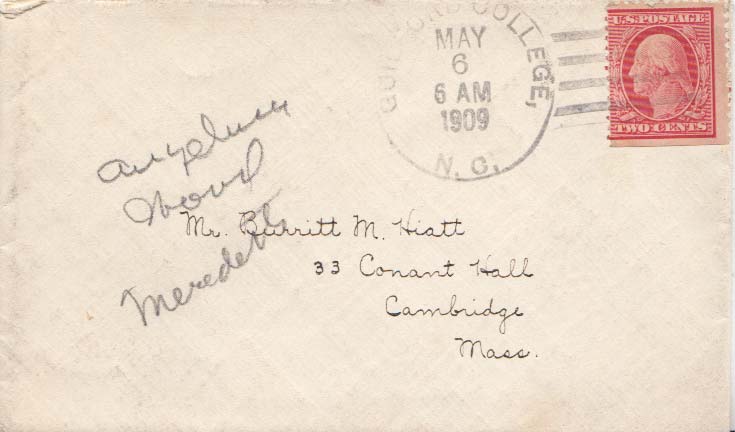 GUILFORD COLLEGE,
MAY
6
6 AM
1909
N. C.
U.S. POSTAGE
TWO CENTS
Mr. Burritt M. Hiatt
33 Conant Hall
Cambridge
Mass.